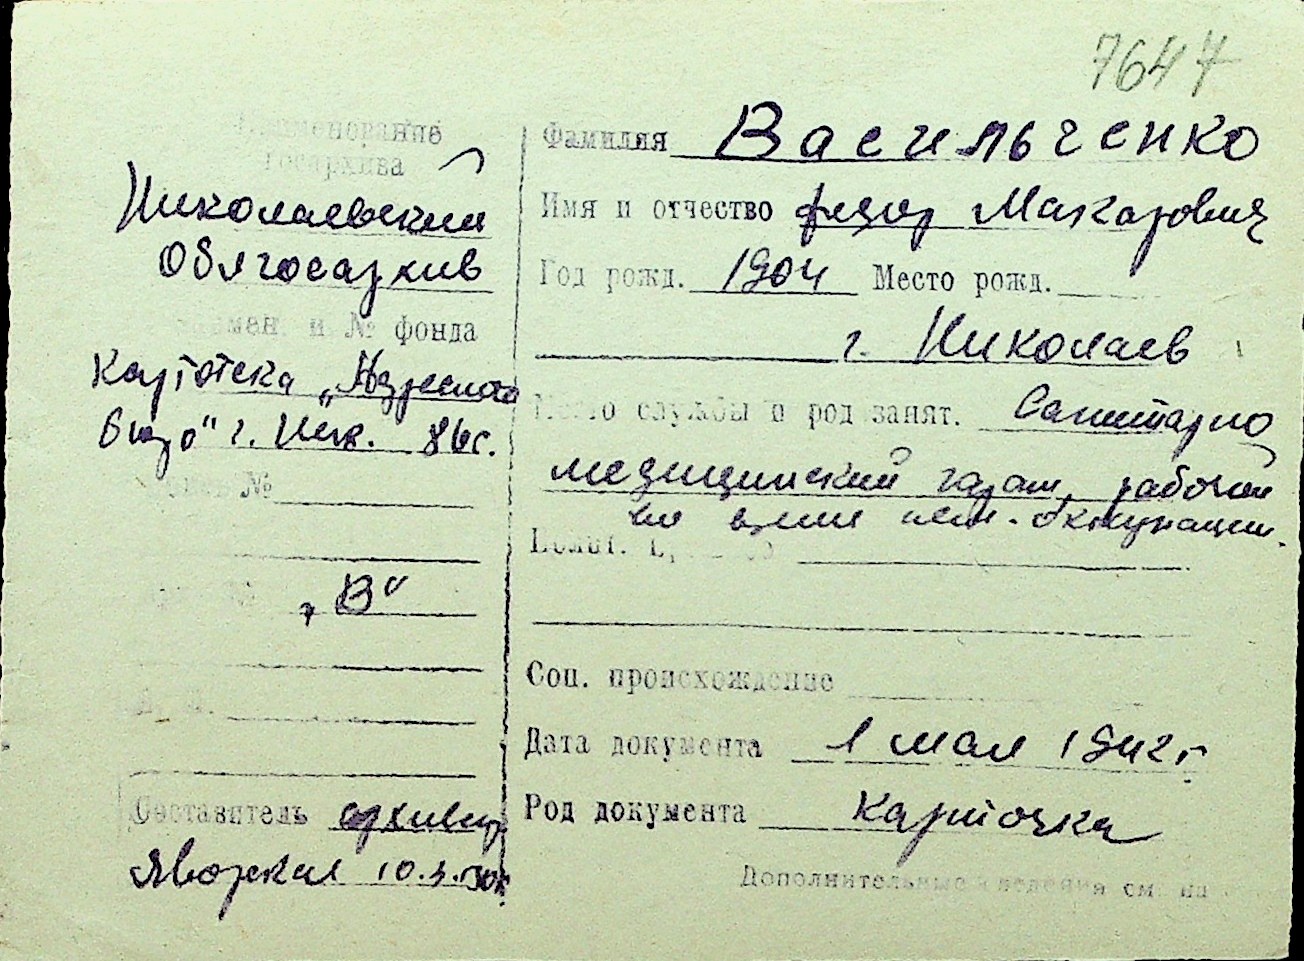 7647
Наименование
госархива
Николаевский
Облгосархив
наимен. и № фонда
Картотека „Адресного
бюро" г. Ник. 86с.
опись №
„В"
Составитель архивар
Яворская 10.3.50г.
Фамилия Васильченко
Имя и отчество Федор Макарович
Год рожд. 1904 Место рожд.
г. Николаев
Место службы и род занят. Санитарно
медицинский рабочий
нем. оккупации.
Соц. происхождение
Дата документа 1 мая 1942г
Род документа карточка
Дополнительные сведения см. на